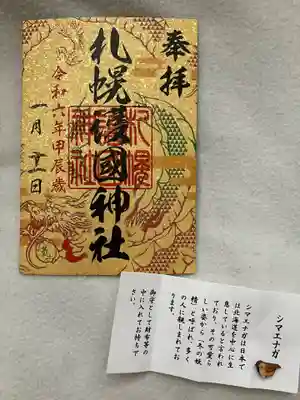 奉拝
札幌護國神社
令和六年甲辰歳
一月十一日
札幌
護國
神社
シマエナガ
シマエナガは日本で
は北海道を中心に生
息していると言われ
ており、その可愛ら
しい姿から「冬の妖
精」と呼ばれ、多く
の人に親しまれてお
ります。
御守として財布等の
中に入れてお持ち下
さい。